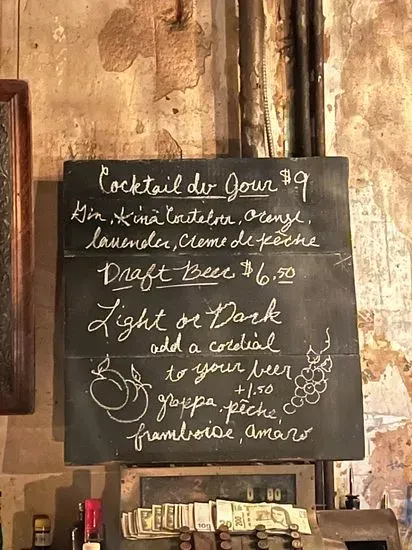 Cocktail du Jour $9
Gin, Kina Coutelon, orange,
lavender, creme de pêche
Draft Beer $6.50
Light or Dark
add a cordial
to your beer
+1.50
grappa, pêche
framboise, amaro